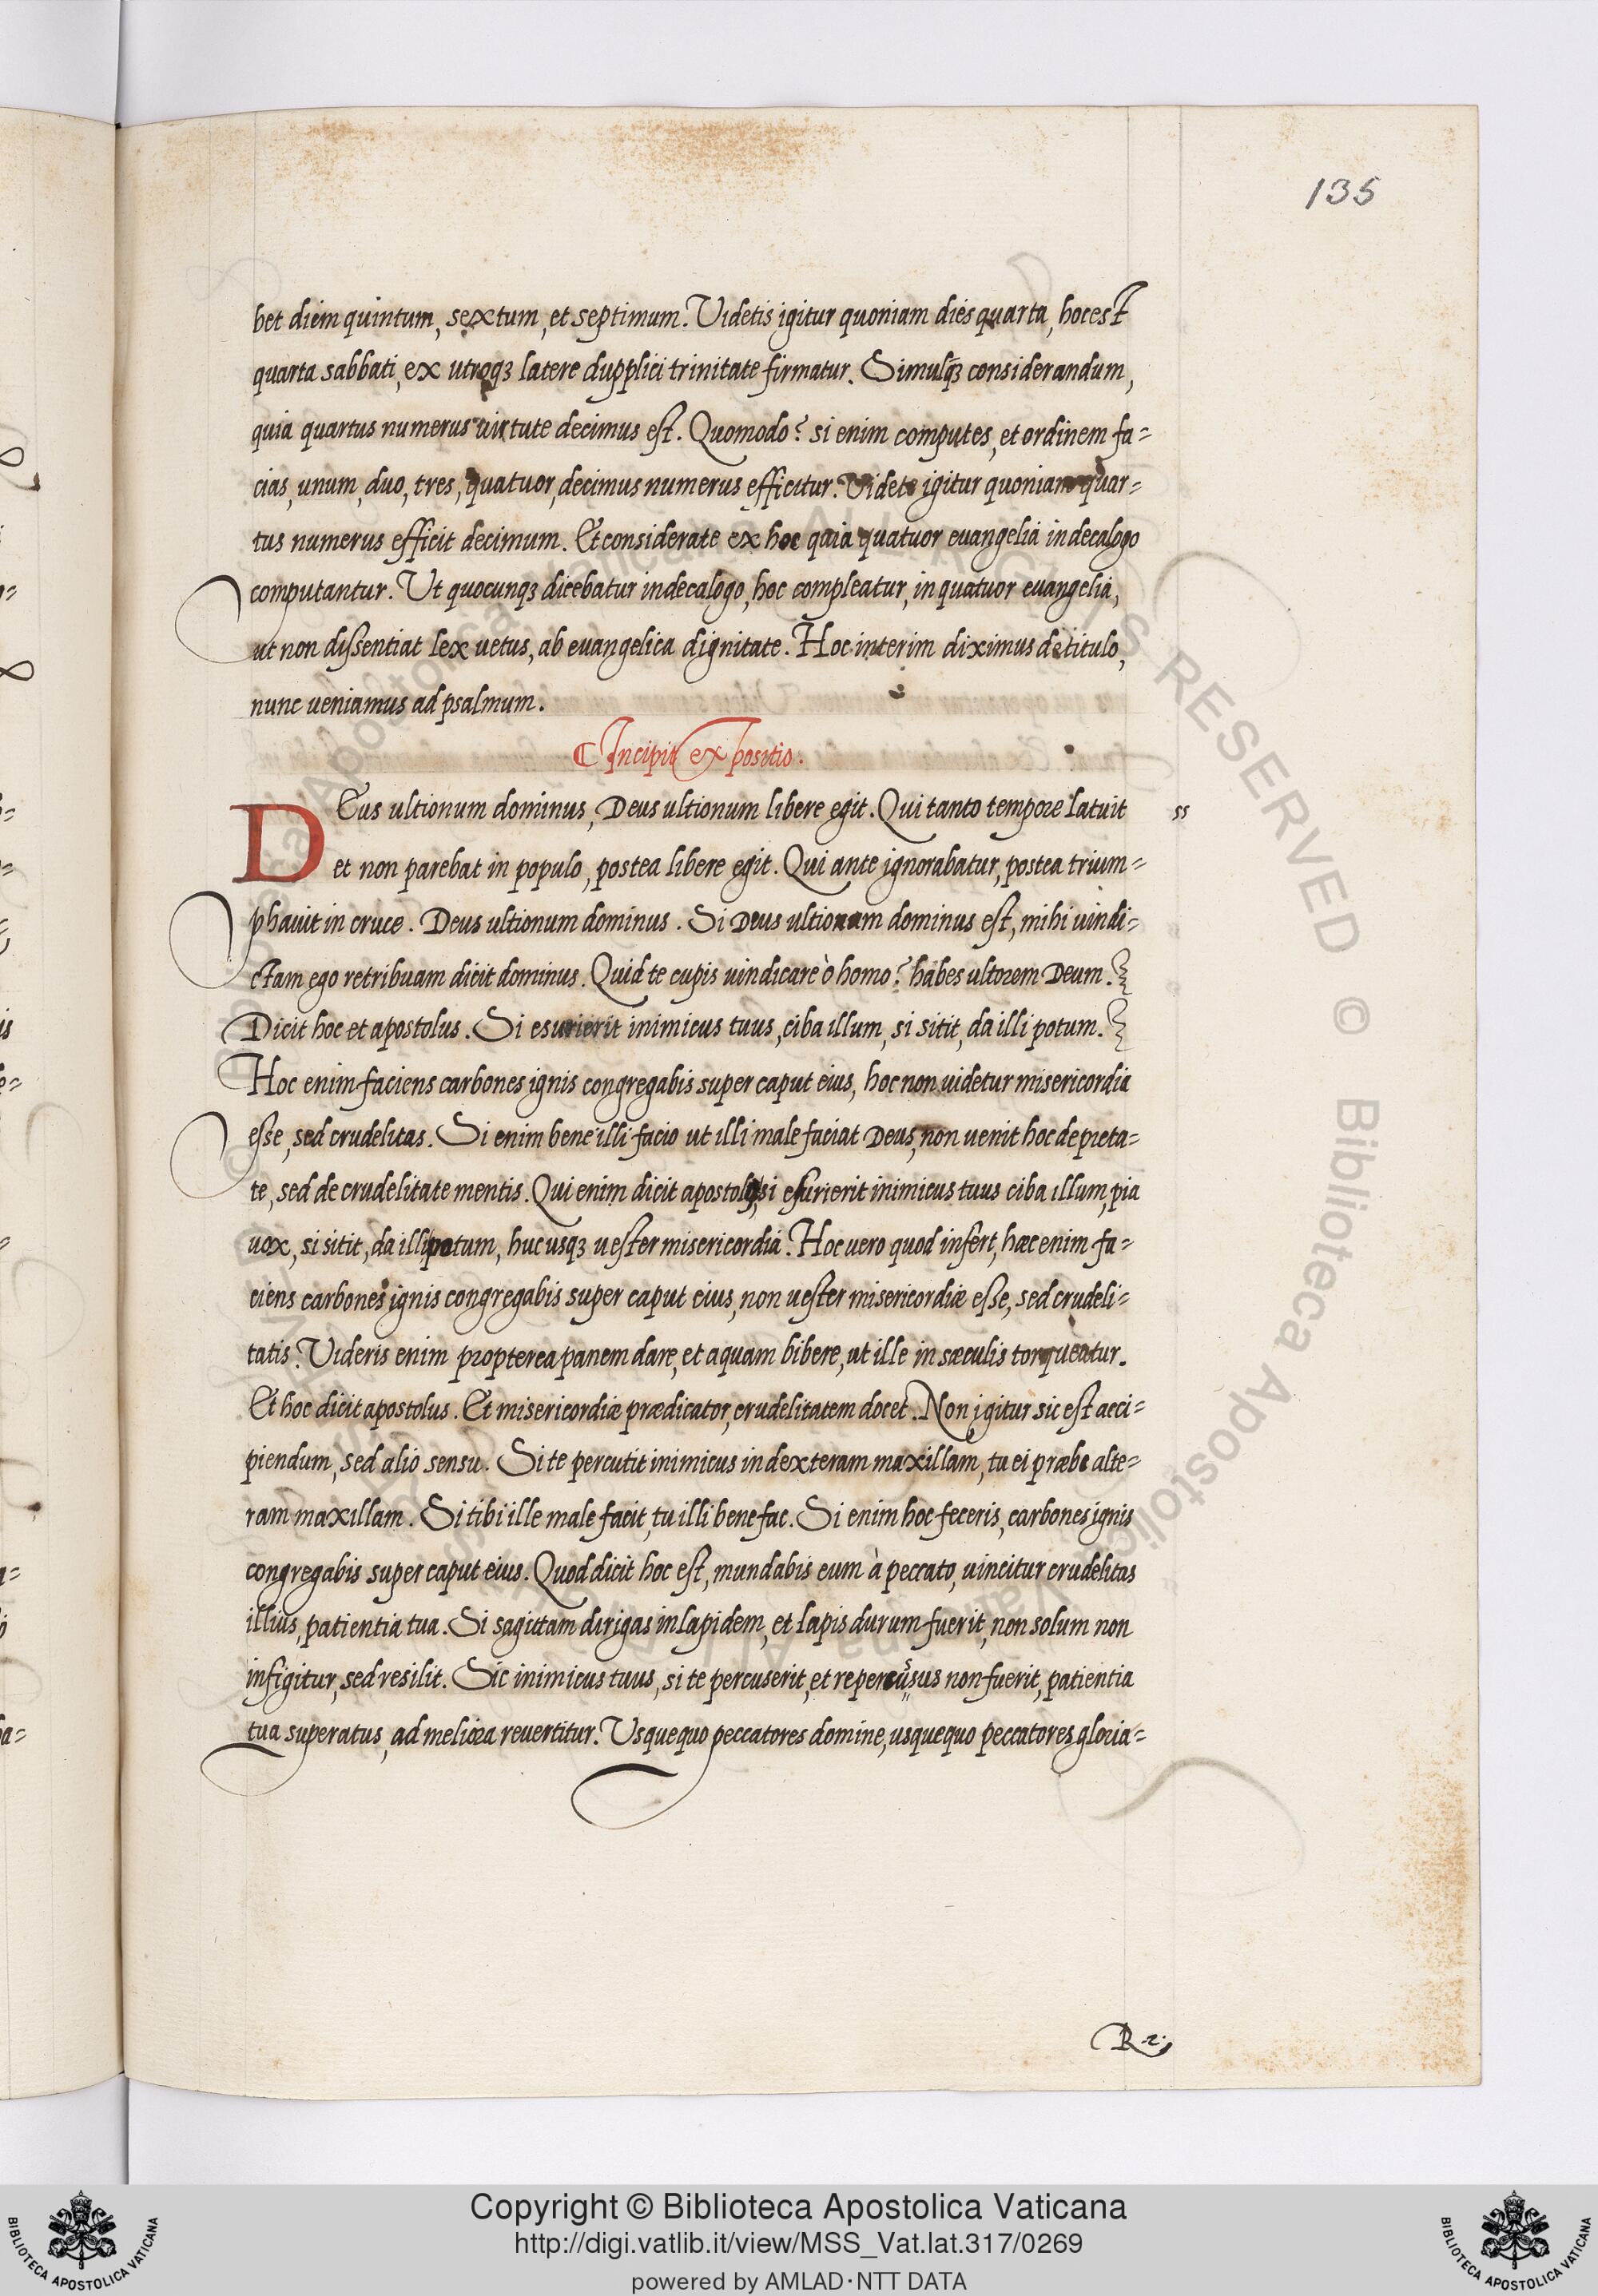 135
bet diem quintum, sextum, et septimum. Videtis igitur quoniam dies quarta, hoc est
quarta sabbati, ex utroqȝ latere dupplici trinitate firmatur. Simulqȝ considerandum,
quia quartus numerus virtute decimus est. Quomodo? si enim computes, et ordinem fa=
cias, unum, duo, tres, quatuor, decimus numerus efficitur. Videte igitur quoniam quar=
tus numerus efficit decimum. Et considerate ex hoc quia quatuor evangelia in decalogo
computantur. Ut quocunqȝ dicebatur in decalogo, hoc compleatur, in quatuor evangelia,
ut non dissentiat lex uetus, ab euangelica dignitate. Hoc interim diximus de titulo,
nunc ueniamus ad psalmum.
Incipit expositio.
DEus ultionum dominus, Deus ultionum libere egit. Qui tanto tempore latuit ss
et non parebat in populo, postea libere egit. Qui ante ignorabatur, postea trium=
phavit in cruce. Deus ultionum dominus. Si Deus ultionum dominus est, mihi uindi=
ctam ego retribuam dicit dominus. Quid te cupis uindicare ò homo? habes ultorem Deum.
Dicit hoc et apostolus. Si esurierit inimicus tuus, ciba illum, si sitit, da illi potum.
Hoc enim faciens carbones ignis congregabis super caput eius, hoc non uidetur misericordia
esse, sed crudelitas. Si enim bene illi facio ut illi male faciat Deus, non uenit hoc de pieta=
te, sed de crudelitate mentis. Qui enim dicit apostolus, si esurierit inimicus tuus ciba illum, pia
uox, si sitit, da illi potum, huc usqȝ uester misericordia. Hoc uero quod infert, hæc enim fa=
ciens carbones ignis congregabis super caput eius, non uester misericordiæ esse, sed crudeli=
tatis. Videris enim propterea panem dare, et aquam bibere, ut ille in sæculis torqueatur.
Et hoc dicit apostolus. Et misericordiæ prædicator, crudelitatem docet. Non igitur sic est acci=
piendum, sed alio sensu. Si te percutit inimicus in dexteram maxillam, tu ei præbe alte=
ram maxillam. Si tibi ille male facit, tu illi bene fac. Si enim hoc feceris, carbones ignis
congregabis super caput eius. Quod dicit hoc est, mundabis eum à peccato, uincitur crudelitas
illius, patientia tua. Si sagittam dirigas in lapidem, et lapis durum fuerit, non solum non
infigitur, sed resilit. Sic inimicus tuus, si te percuserit, et repercusus non fuerit, patientia
tua superatus, ad meliora revertitur. Usquequo peccatores domine, usquequo peccatores gloria=
R 2
Copyright © Biblioteca Apostolica Vaticana
http://digi.vatlib.it/view/MSS_Vat.lat.317/0269
powered by AMLAD·NTT DATA
BIBLIOTECA APOSTOLICA VATICANA
BIBLIOTECA APOSTOLICA VATICANA